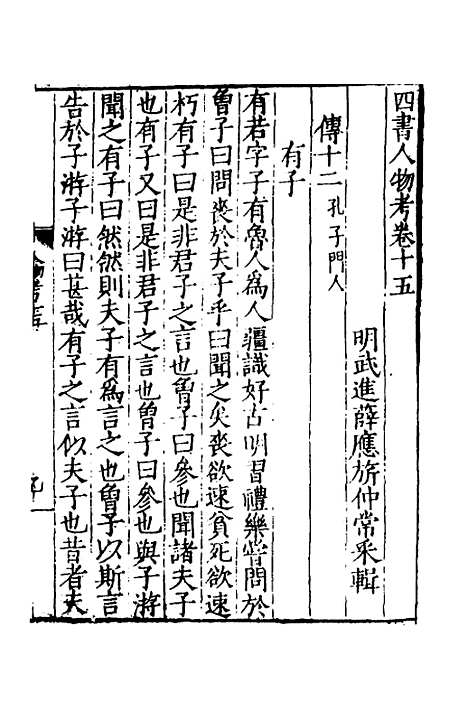 四書人物考卷十五
明武進薛應旂仲常采輯
傳十二 孔子門人
有子
有若字子有魯人爲人彊識好古明習禮樂嘗問於
曾子曰問喪於夫子乎曰聞之矣喪欲速貧死欲速
朽有子曰是非君子之言也曾子曰參也聞諸夫子
也有子又曰是非君子之言也曾子曰參也與子游
聞之有子曰然然則夫子有爲言之也曾子以斯言
告於子游子游曰甚哉有子之言似夫子也昔者夫